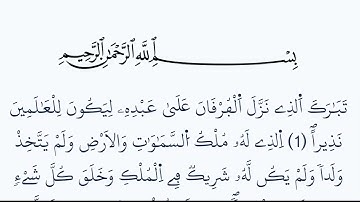 بِسْمِ اِ۬للَّهِ اِ۬لرَّحْمَٰنِ اِ۬لرَّحِيمِ
تَبَٰرَكَ اَ۬لذِے نَزَّلَ اَ۬لْفُرْقَانَ عَلَيٰ عَبْدِهِۦ لِيَكُونَ لِلْعَٰلَمِينَ
نَذِيراًۖ (1) اِ۬لذِے لَهُۥ مُلْكُ اُ۬لسَّمَٰوَٰتِ وَالَارْضِ وَلَمْ يَتَّخِذْ
وَلَداٗ وَلَمْ يَكُن لَّهُۥ شَرِيكٞ فِے اِ۬لْمُلْكِ وَخَلَقَ كُلَّ شَےْءٖ